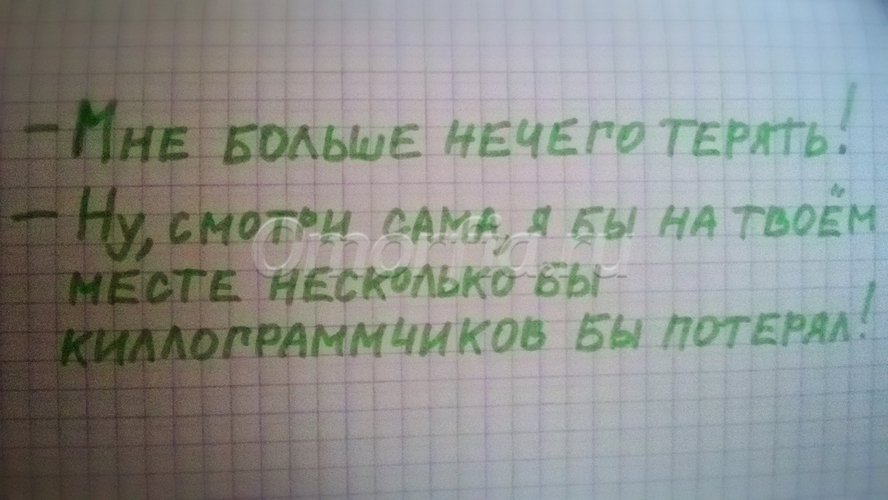 - Мне больше нечего терять!
- Ну, смотри сама, я бы на твоём
месте несколько бы
киллограммчиков бы потерял!